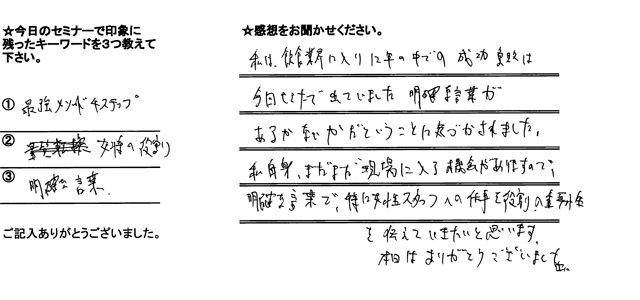 ☆今日のセミナーで印象に
残ったキーワードを3つ教えて
下さい。
① 最強メソッド4ステップ
② 女性の役割
③ 明確な言葉
ご記入ありがとうございました。
☆感想をお聞かせください。
私は、飲食業界に入り12年の中での成功失敗は
今日セミナーで出ていました 明確な言葉が
あるかないかだということに気づかされました。
私自身、まだまだ現場に入る機会がありますので、
明確な言葉で、特に女性スタッフへの仕事を役割の重要性
を伝えていきたいと思います。
本日はありがとうございました